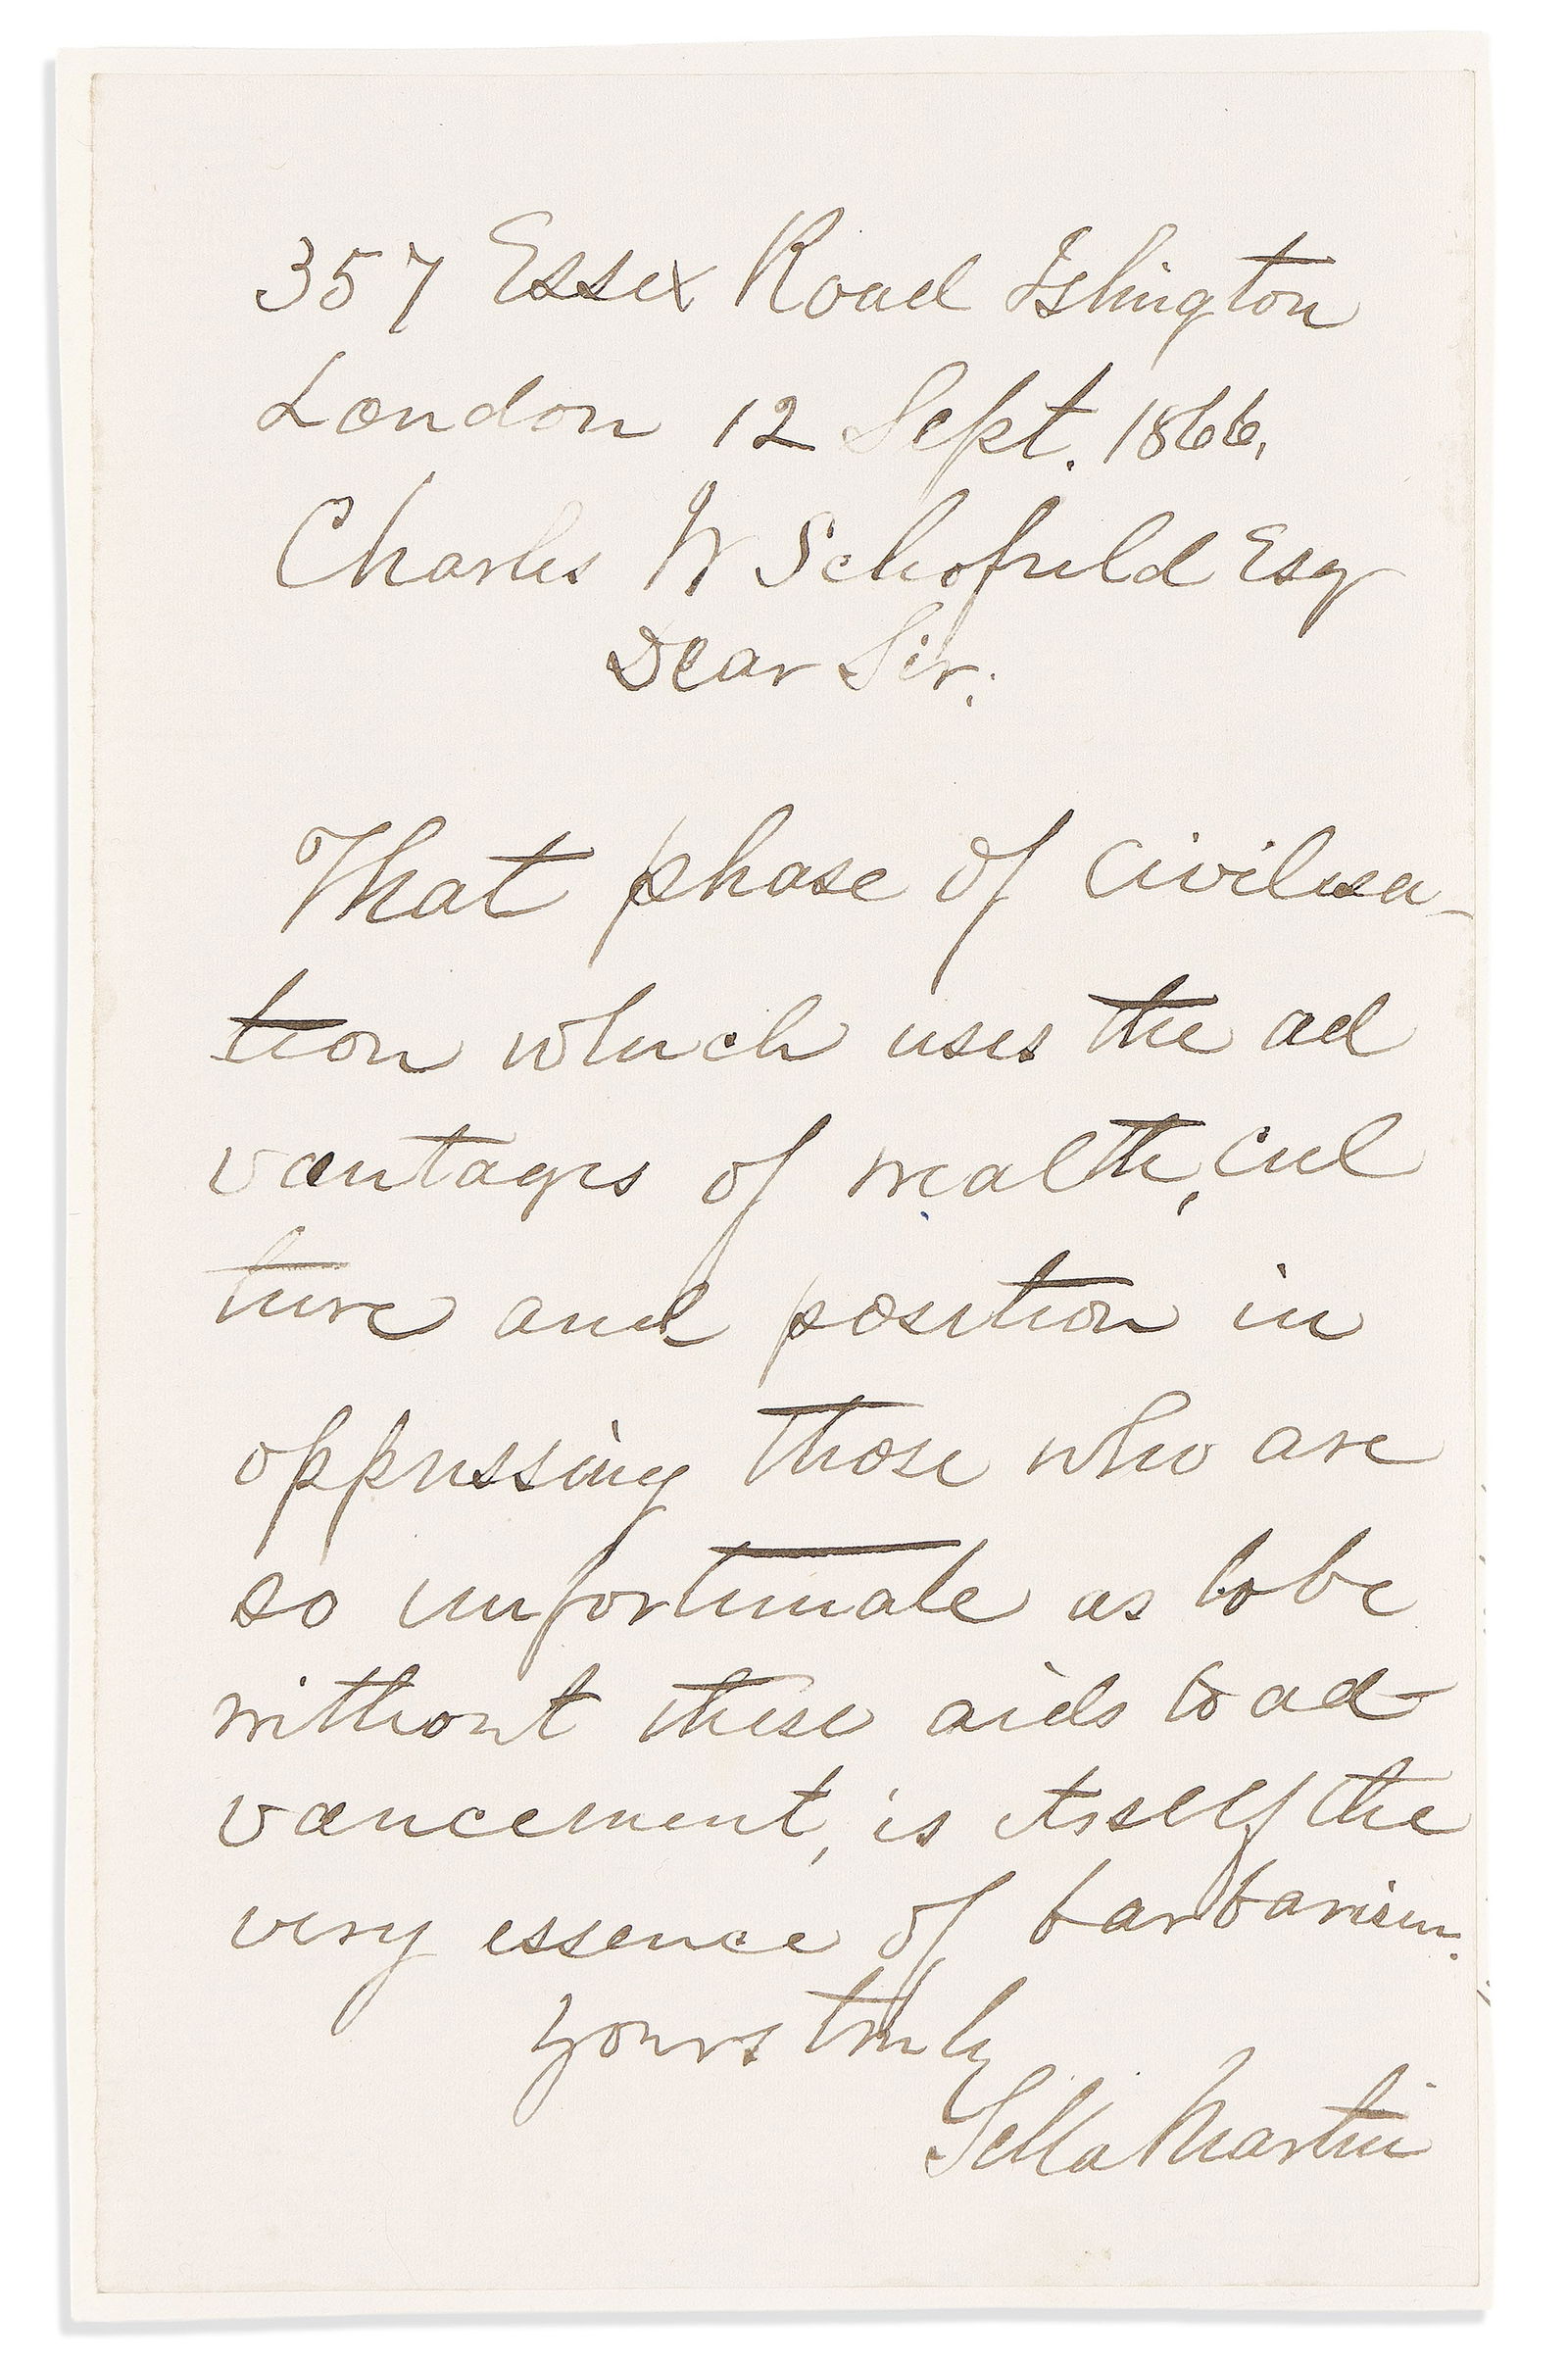 357 Essex Road Islington
London 12 Sept. 1866.
Charles W Schofield Esq
Dear Sir:
That phase of civilisa-
tion which uses the ad
vantages of wealth, cul
ture and position in
oppressing those who are
so unfortunate as to be
without these aids to ad-
vancement, is itsself the
very essence of barbarism.
Yours truly
Sella Martin